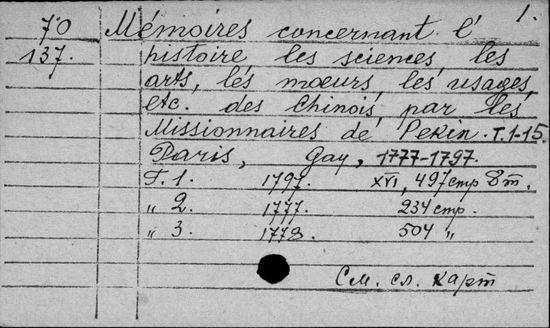 1.
70 Mémoires concernant l'
137. histoire les sciences, les
arts, les mœurs, les usages,
etc. des Chinois, par les
Missionnaires de Pekin. T. 1-15.
Paris, Gay, 1777-1797.
Т. 1. 1797. XVI, 497 стр. 8 т.
„ 2. 1777. 234 стр.
„ 3. 1778. 504 „
См. сл. карт